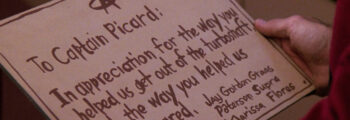 To Captain Picard:
In appreciation for the way you
helped us get out of the turboshaft
the way you helped us
Jay Gordon Graas
Paterson Supra
Marissa Flores